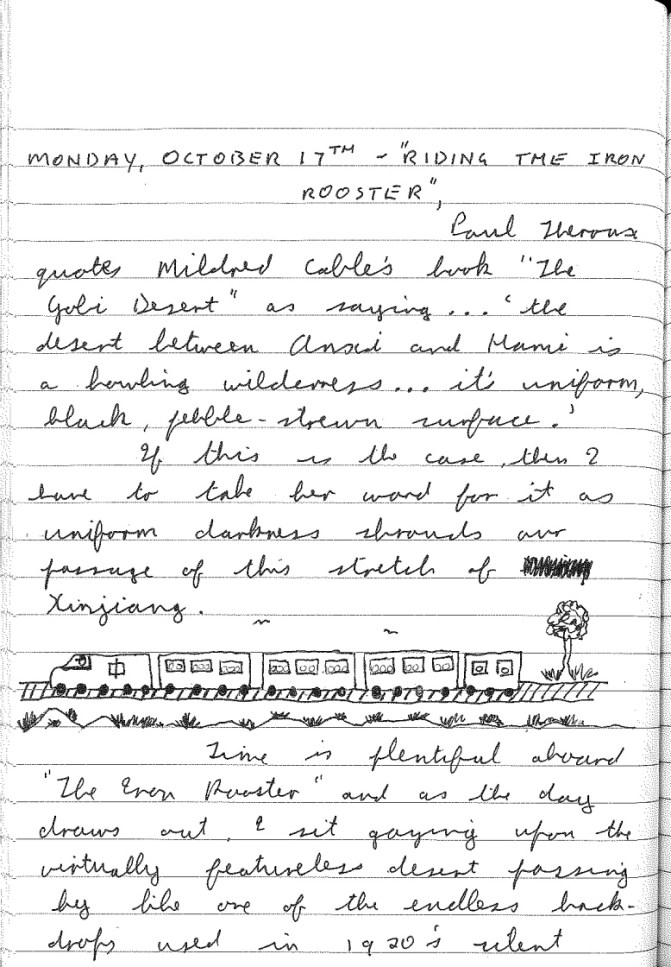 MONDAY, OCTOBER 17TH - "RIDING THE IRON
ROOSTER",
Paul Theroux
quotes Mildred Cable's book "The
Gobi Desert" as saying... 'the
desert between Anxi and Hami is
a howling wilderness... it's uniform,
black, pebble-strewn surface.'
If this is the case, then I
have to take her word for it as
uniform darkness shrouds our
passage of this stretch of
Xinjiang.
中
Time is plentiful aboard
"The Iron Rooster" and as the day
draws out, I sit gazing upon the
virtually featureless desert passing
by like one of the endless back-
drops used in 1920's silent